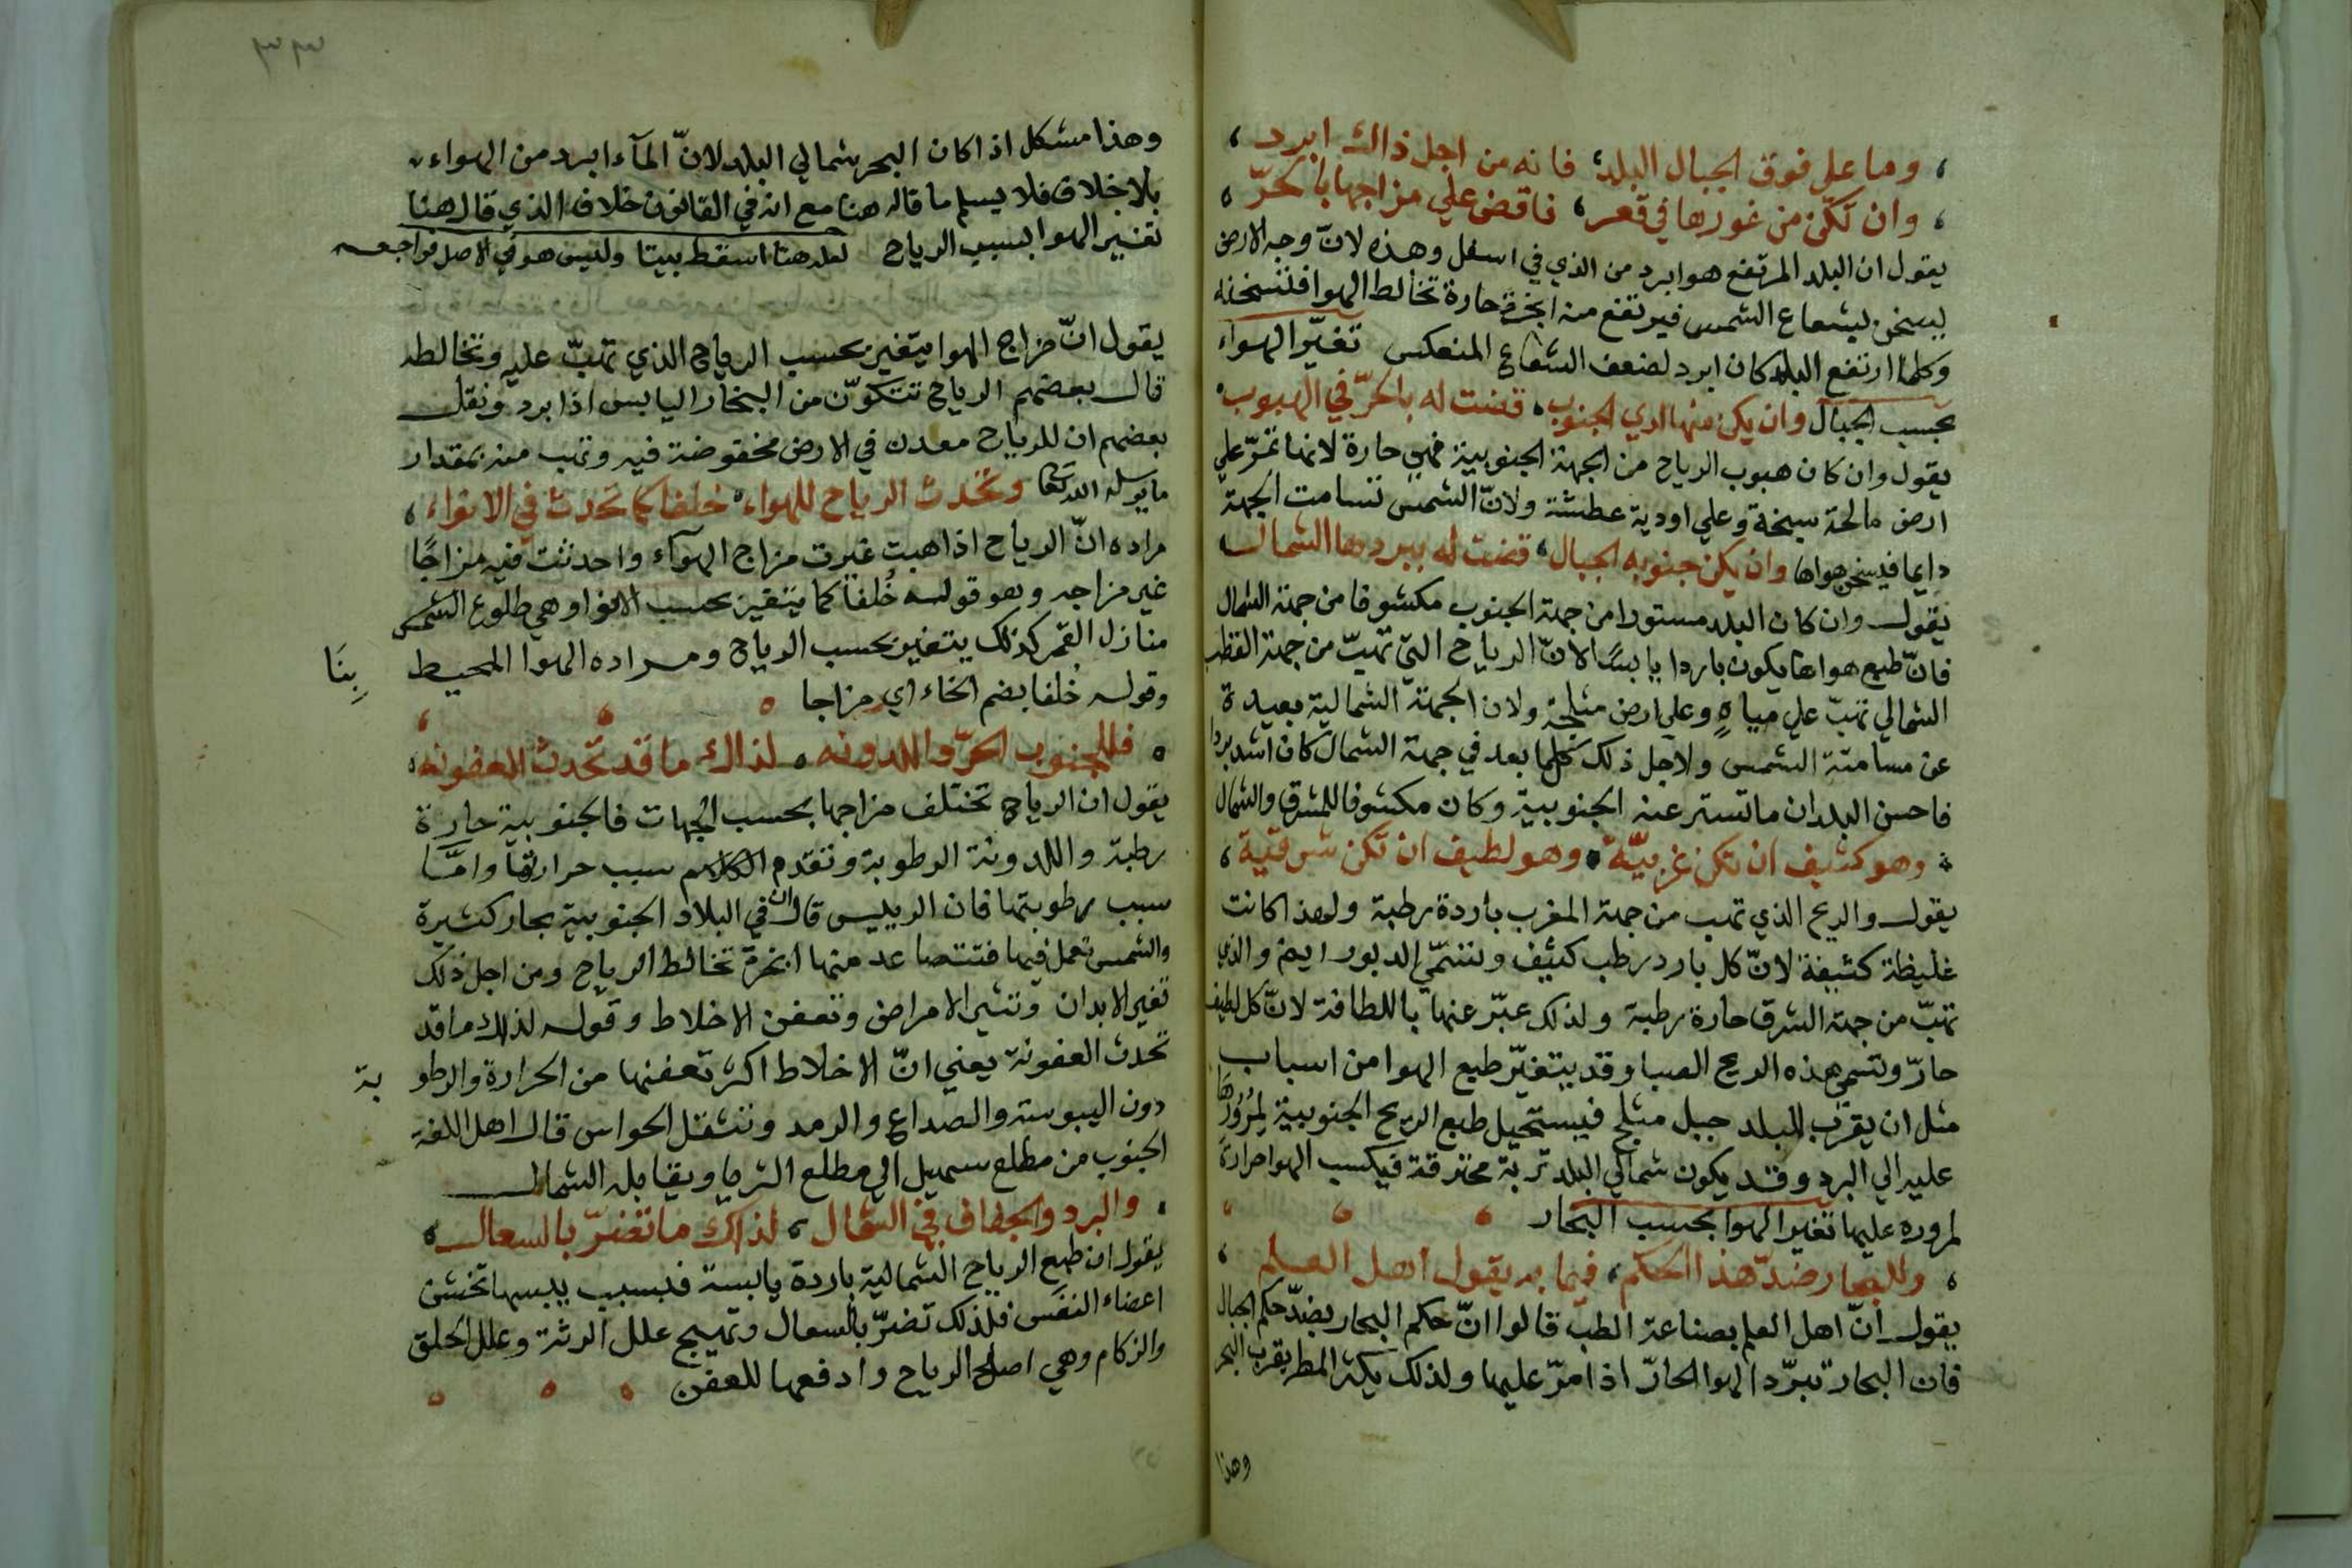 وما علي فوق الجبال البلد، فانه من اجل ذاك ابرد
وان تكن من غورها في قعر، فاقض علي مزاجها بالحرّ
يقول ان البلد المرتفع هو ابرد من الذي في اسفل وهذه لانّ وجه الارض
يسخن بشعاع الشمس فيرتفع منه ابخرة حارة تخالط الهوا فتسخنه
وكلما ارتفع البلد كان ابرد لضعف الشعاع المنعكس تغيّر الهواء
بحسب الجبال وان يكن منها لدي الجنوب، قضت له بالحرّ في الهبوب
يقول وان كان هبوب الرياح من الجهة الجنوبية فهي حارة لانها تمرّ علي
ارض مالحة سبخة وعلي اودية عطشة ولانّ الشمس تسامت الجهة
دايما فيسخن هواها وان يكن جنوبه الجبال، قضت له ببردها الشمال
يقول وان كان البلد مستورا من جهة الجنوب مكشوفا من جهة الشمال
فانّ طبع هواها يكون باردا يابسًا لانّ الرياح التي تهبّ من جهة القطب
الشمالي تهبّ علي مياه وعلي ارض مثلجة ولان الجهة الشمالية بعيدة
عن مسامتة الشمس ولاجل ذلك كلما بعد في جهة الشمال كان اشد بردا
فاحسن البلدان ما تستر عنه الجنوبية وكان مكشوفا للمشرق والشمال
وهو كثيف ان تكن غربيّة، وهو لطيف ان تكن شرقية
يقول والريح الذي تهب من جهة المغرب باردة رطبة ولهذا كانت
غليظة كثيفة لانّ كل بارد رطب كثيف وتسمّي الدبور ايض والذي
تهبّ من جهة الشرق حارة رطبة ولذلك عبّر عنها باللطافة لانّ كل لطيف
حارّ وتسمي هذه الريح الصبا وقد يتغيّر طبع الهوا من اسباب
مثل ان يقرب البلد جبل مثلج فيستحيل طبع الريح الجنوبية لمرورها
عليه الي البرد وقد يكون شمالي البلد تربة محترقة فيكسب الهوا حرارة
لمروره عليها تغير الهوا بحسب البحار
وللبحار ضدّ هذا الحكم، فيما به يقول اهل العلم
يقول انّ اهل العلم بصناعة الطبّ قالوا انّ حكم البحار بضدّ حكم الجبال
فان البحار تبرّد الهوا الحارّ اذا مرّ عليها ولذلك يكثر المطر بقرب البحر
وهذا
٣٣
وهذا مشكل اذا كان البحر شمالي البلد لانّ المآء ابرد من الهواء
بلا خلاف فلا يسلم ما قاله هنا مع انه في القانون خلاف الذي قال هنا
تغيير الهوا بسبب الرياح لعله هنا اسقط بيتا وليس هو في الاصل فراجعه
يقول انّ مزاج الهوا يتغير بحسب الرياح الذي تهبّ عليه وتخالطه
قال بعضهم الرياح تتكوّن من البخار اليابس اذا برد ونقل
بعضهم ان للرياح معدن في الارض مخفوضة فيه وتهب منه بمقدار
ما يرسله الله تعا وتحدث الرياح للهواء، خلفا كما تحدث في الانواء
مراده انّ الرياح اذا هبت غيرت مزاج الهوآء واحدثت فيه مزاجًا
غير مزاجه وهو قوله خُلفا كما يتغير بحسب الانوا وهي طلوع الشمس
منازل القمر كذلك يتغير بحسب الرياح ومراده الهوا المحيط بِنَا
وقوله خُلفا بضم الخاء اي مزاجا
فللجنوب الحرّ واللدونه، لذاك ما قد تحدث العفونه
يقول ان الرياح تختلف مزاجها بحسب الجهات فالجنوبية حارة
رطبة واللدونة الرطوبة وتقدم الكلام سبب حرارتها وامّا
سبب رطوبتها فان الرييس قال ان في البلاد الجنوبية بحار كثيرة
والشمس تعمل فيها فتتصاعد منها ابخرة تخالط الرياح ومن اجل ذلك
تغير الابدان وتثير الامراض وتعفن الاخلاط وقوله لذلك ما قد
تحدث العفونة يعني انّ الاخلاط اكثر تعفنها من الحرارة والرطوبة
دون اليبوسة والصداع والرمد وتثقل الحواس قال اهل اللغة
الجنوب من مطلع سهيل الي مطلع الثريا ويقابله الشمال
والبرد والجفاف في الشمال، لذاك ما تضرّ بالسعال
يقول ان طبع الرياح الشمالية باردة يابسة فبسبب يبسها تخشن
اعضاء النفس فلذلك تضرّ بالسعال وتهيج علل الرئة وعلل الحلق
والزكام وهي اصلح الرياح وادفعها للعفن